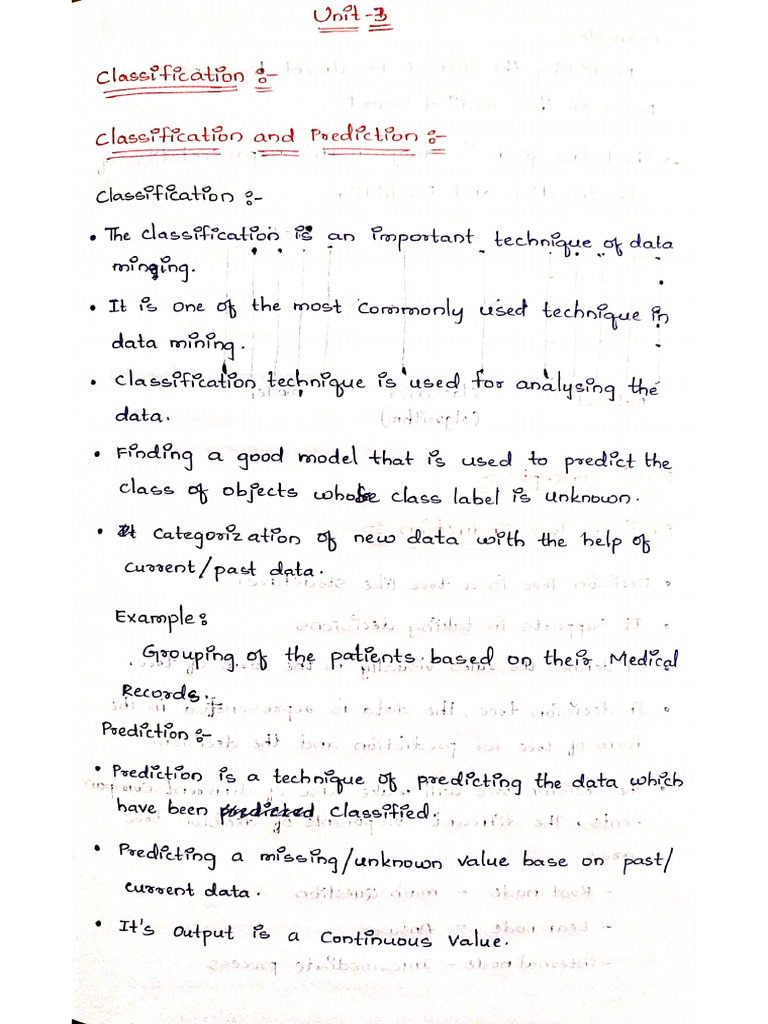 Unit-3
Classification :-
Classification and Prediction :-
Classification :-
• The classification is an important technique of data
minging.
• It is one of the most commonly used technique in
data mining.
• Classification technique is used for analysing the
data.
• Finding a good model that is used to predict the
class of objects whose class label is unknown.
• Categorization of new data with the help of
current/past data.
Example:
Grouping of the patients based on their Medical
Records.
Prediction :-
• Prediction is a technique of predicting the data which
have been predicted classified.
• Predicting a missing/unknown value base on past/
current data.
• It's output is a continuous value.